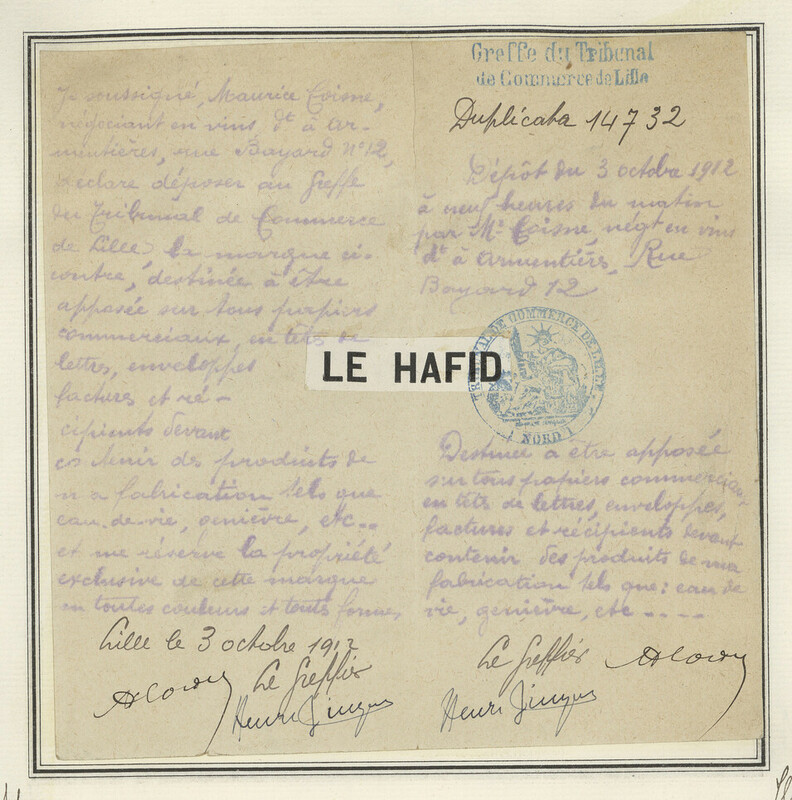 Je soussigné, Maurice Coisne,
négociant en vins, dt à Ar-
mentières, rue Bayard N° 12,
déclare déposer au Greffe
du Tribunal de Commerce
de Lille, la marque ci-
contre, destinée à être
apposée sur tous papiers
commerciaux, en têts de
lettres, enveloppes
factures et ré-
cipients devant
contenir des produits de
ma fabrication tels que
eau-de-vie, genièvre, etc...
et me réserve la propriété
exclusive de cette marque
en toutes couleurs et toutes formes,
Lille le 3 octobre 1912
Le Greffier
Henri
LE HAFID
Greffe du Tribunal
de Commerce de Lille
Duplicata 14732
Dépôt du 3 octobre 1912
à neuf heures du matin
par Mr Coisne, négt en vins
dt à Armentières, Rue
Bayard 12
TRIBUNAL DE COMMERCE DE LILLE
NORD
Destinée à être apposée
sur tous papiers commerciaux
en têts de lettres, enveloppes,
factures et récipients devant
contenir des produits de ma
fabrication tels que: eau de
vie, genièvre, etc.....
Le Greffier
Henri